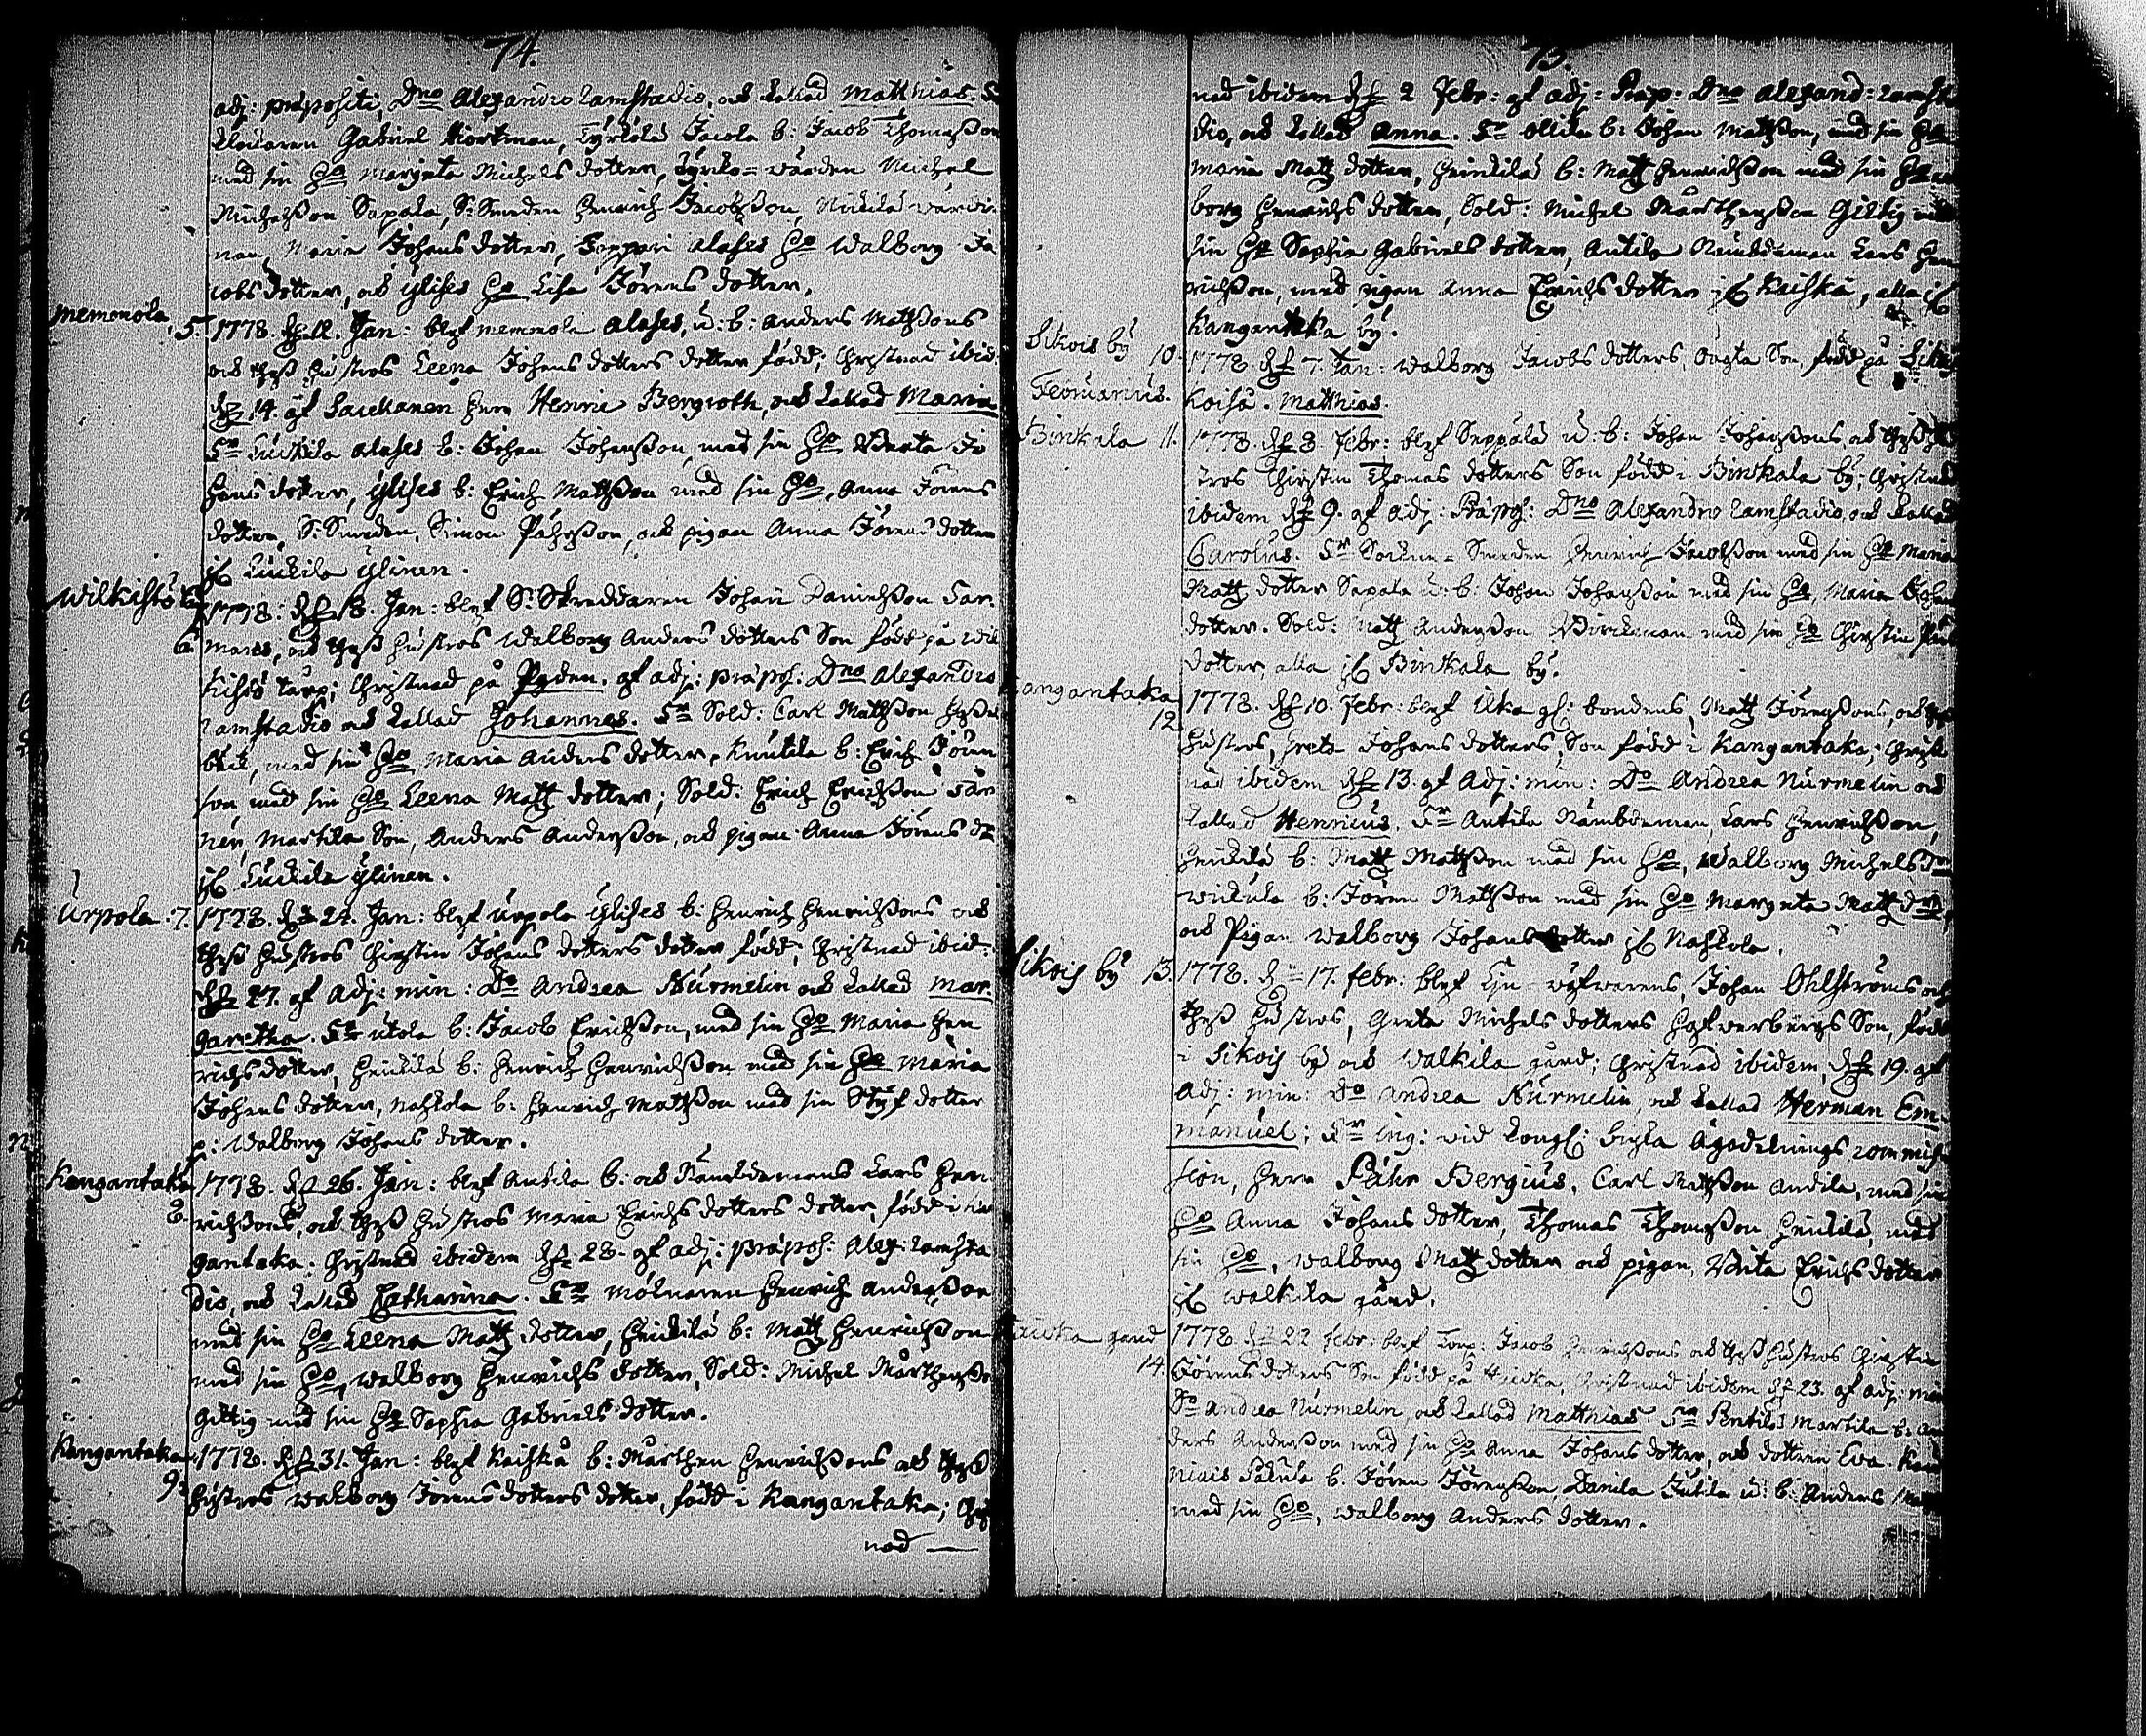 74.
adj: præpositi, Dno Alexandro Lamstadio, och kallad Matthias.
Klockaren Gabriel Kortman, Jacola b: Jacob Thomasson
med sin Ho Margeta Michels dotter, Kyrko-wärden Michel
Michelsson Sapala, S: Smeden Henrich Jacobsson,
Maria Johans dotter, Alases Ho Walborg Ja
cobs dotter, och Ylises Ho Lisa Jörens dotter.
Memenola
5. 1778. Jan: blef Memenola Alases, u: b: Anders Mattssons
och thess hustros Leena Johans dotters dotter född; Christnad ibid:
d: 14. af Saukkanen Herr Henric Bergroth, och kallad Maria
Alases b: Johan Johansson, med sin Ho Berta Jo
hans dotter, Ylises b: Erich Mattsson med sin Ho, Anna Jörens
dotter, S: Smeden, Simon Påhrsson, och pigan Anna Jörens dotter
Ylinen.
Wilkihis
6. 1778: d: 18. Jan: blef S: Skreddaren Johan Danielsson
och thess hustros Walborg Anders dotters Son född på Wil
kihis torp; Christnad på Pyden. af adj: præpos: Dno Alexandro
Lamstadio och kallad Johannes. Sold: Carl Mattsson
med sin Ho Maria Anders dotter, Knutila b: Erich Jören
son med sin Ho Leena Matts dotter; Sold: Erich Erichsson
Martila Son, Anders Andersson, och pigan Anna Jörens dr
Ylinen.
Urpola
7. 1778. d: 24. Jan: blef Urpola Ylises b: Henrich Henrichssons och
thess hustros Christin Johans dotters dotter född; Christnad ibid:
d: 27. af Adj: min: Do Andrea Nurmelin och kallad Mar
garetha. Utola b: Jacob Erichsson, med sin Ho Maria Hen
richs dotter, Heickilä b: Henrich Henrichsson med sin Ho Maria
Johans dotter, Naskola b: Henrich Mattsson med sin Styf dotter
p: Walborg Johans dotter.
Kangantaka
8. 1778. d: 26. Jan: blef Antila b: och Nämdemans Lars Hen
richssons, och thess hustros Maria Erichs dotters dotter, född i Kan
gantaka; Christnad ibidem d: 28. af adj: præpos: Alex: Lamsta
dio, och kallad Catharina. Mölnaren Henrich Andersson
med sin Ho Leena Matts dotter, Heickilä b: Matts Henrichsson
med sin Ho, Walborg Henrichs dotter, Sold: Michel Mårthensson
Giltig med sin Ho Sophia Gabriels dotter.
Kangantaka
9. 1778. d: 31. Jan: blef Kaiskå b: Mårthen Henrichssons och thess
hustros Walborg Jörens dotters dotter, född i Kangantaka; Christ
nad
75.
nad ibidem d: 2 Febr: af adj: Præp: Dno Alexand: Lamsta
dio, och kallad Anna. Ollila b: Johan Mattsson, med sin Ho
Maria Matts dotter, Heickilä b: Matts Henrichsson med sin Ho Wal
borg Henrichs dotter, Sold: Michel Mårthensson Giltig med
sin Ho Sophia Gabriels dotter, Antila Nämdeman Lars Hen
richsson, med pigan Anna Erichs dotter if: Kaiskå, alla if:
Kangantaka by.
Sikois by
10. 1778. d: 7. Jan: Walborg Jacobs dotters, Oägta Son, född på
Koiså. Matthias.
Februarius.
Binkala
11. 1778. d: 8. Febr: blef Seppälä u: b: Johan Johanssons, och thess hu
stros Christin Thomas dotters Son född i Binkala by; Christnad
ibidem d: 9. af Adj: Præpos: Dno Alexandro Lamstadio, och kallad
Carolus. Sockne-Smeden Henrich Jacobsson med sin Ho Maria
Matts dotter Sapala u: b: Johan Johansson med sin Ho, Maria Johans
dotter. Sold: Matts Andersson Björckman med sin Ho Christin
dotter, alla if: Binkala by.
Kangantaka
12. 1778. d: 10. Febr: blef Uka gl: bondens, Matts Jörenssons, och thess
hustros, Greta Johans dotters, Son född i Kangantaka; Christ
nad ibidem d: 13. af Adj: min: Do Andrea Nurmelin och
kallad Henricus. Antila Nämdeman, Lars Henrichsson,
Heickilä b: Matts Mattsson med sin Ho, Walborg Michels dr
Wickula b: Jören Mattsson med sin Ho Margeta Matts dotter,
och Pigan Walborg Johans dotter if: Naskola.
Sikois by
13. 1778. d: 17. febr: blef Lin-wäfwarens, Johan Ohlströms och
thess hustros, Greta Michels dotters Son, född
i Sikois by och Walkila gård; Christnad ibidem, d: 19. af
Adj: min: Do Andrea Nurmelin, och kallad Herman Em
manuel; Ing: vid Kongl: Ägodelnings commis
sion, Herr Pähr Bergius, Carl Mattsson Andila, med sin
Ho Anna Johans dotter, Thomas Thomasson Heickilä, med
sin Ho, Walborg Matts dotter och pigan, Brita Erichs dotter
if: Walkila gård.
gård
14. 1778. d: 22 febr: blef Torp: Jacob Henrichssons och thess hustros Christin
Jörens dotters Son född på Christnad ibidem d: 23. af adj: min:
Do Andrea Nurmelin, och kallad Matthias. Pentilä Martila b: An
ders Andersson med sin Ho Anna Johans dotter, och dottren Eva.
b: Jören Jörensson, Danila Jutila u: b: Anders
med sin Ho, Walborg Anders dotter.